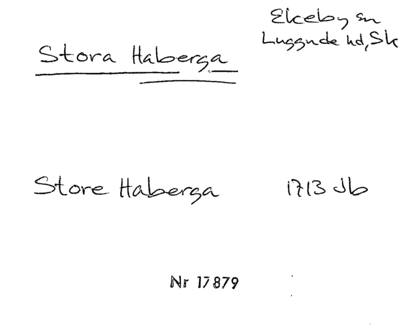 Ekeby sn
Luggude hd, Sk
Stora Haberga
Store Haberga 1713 Jb
Nr 17879